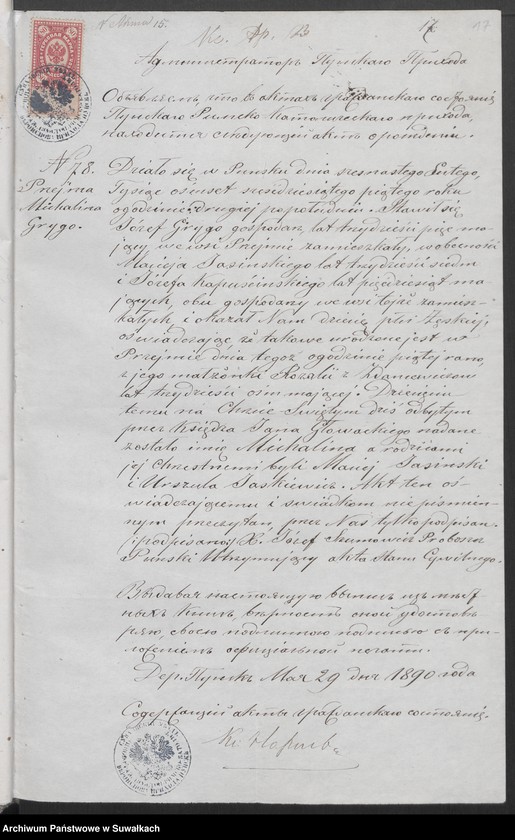 17
Администраторъ Пунскаго Прихода
Объявляетъ что въ актахъ гражданскаго состоянія
Пунскаго Римско-Католическаго прихода,
находится слѣдующій актъ о рожденіи.
N 78.
Prejma
Michalina
Grygo.
Działo się w Puńsku dnia siedmnastego Lutego,
Tysiąc osiemset sześćdziesiątego piątego roku
o godzinie drugiej po południu. Stawił się
Józef Grygo gospodarz, lat trzydzieści pięć ma-
jący we wsi Prejmie zamieszkały, w obecności
Macieja Jasinskiego lat trzydzieści siedm
i Józefa Kapuscinskiego lat pięćdziesiąt ma-
jących, obu gospodarzy we wsi tejże zamiesz-
kałych i okazał Nam dziecię płci żeńskiej,
oświadczając, że takowe urodzone jest w
Prejmie dnia tegoż o godzinie piątej rano,
z jego małżonki Rozalii z Zdaniewiczów
lat trzydzieści osm mającej. Dziecięciu
temu na Chrzcie Świętym dziś odbytym
przez Księdza Jana Głowackiego nadane
zostało imię Michalina a rodzicami
jej Chrzestnemi byli Maciej Jasinski
i Urszula Jaskiewicz. Akt ten oś-
wiadczającemu i świadkom niepiśmien-
nym przeczytan, przez Nas tylko podpisan.
(podpisano) X. Józef Szumowicz Proboszcz
Puński Utrzymujący akta Stanu Cywilnego.
Выдавая настоящую выпись изъ
книгъ, вѣрность оной удостовѣ-
ряю, своею подписью съ при-
ложеніемъ оффиціальной печати.
Дер. Пунскъ Мая 29 дня 1890 года
Содержащій акты гражданскаго состоянія.
Archiwum Państwowe w Suwałkach